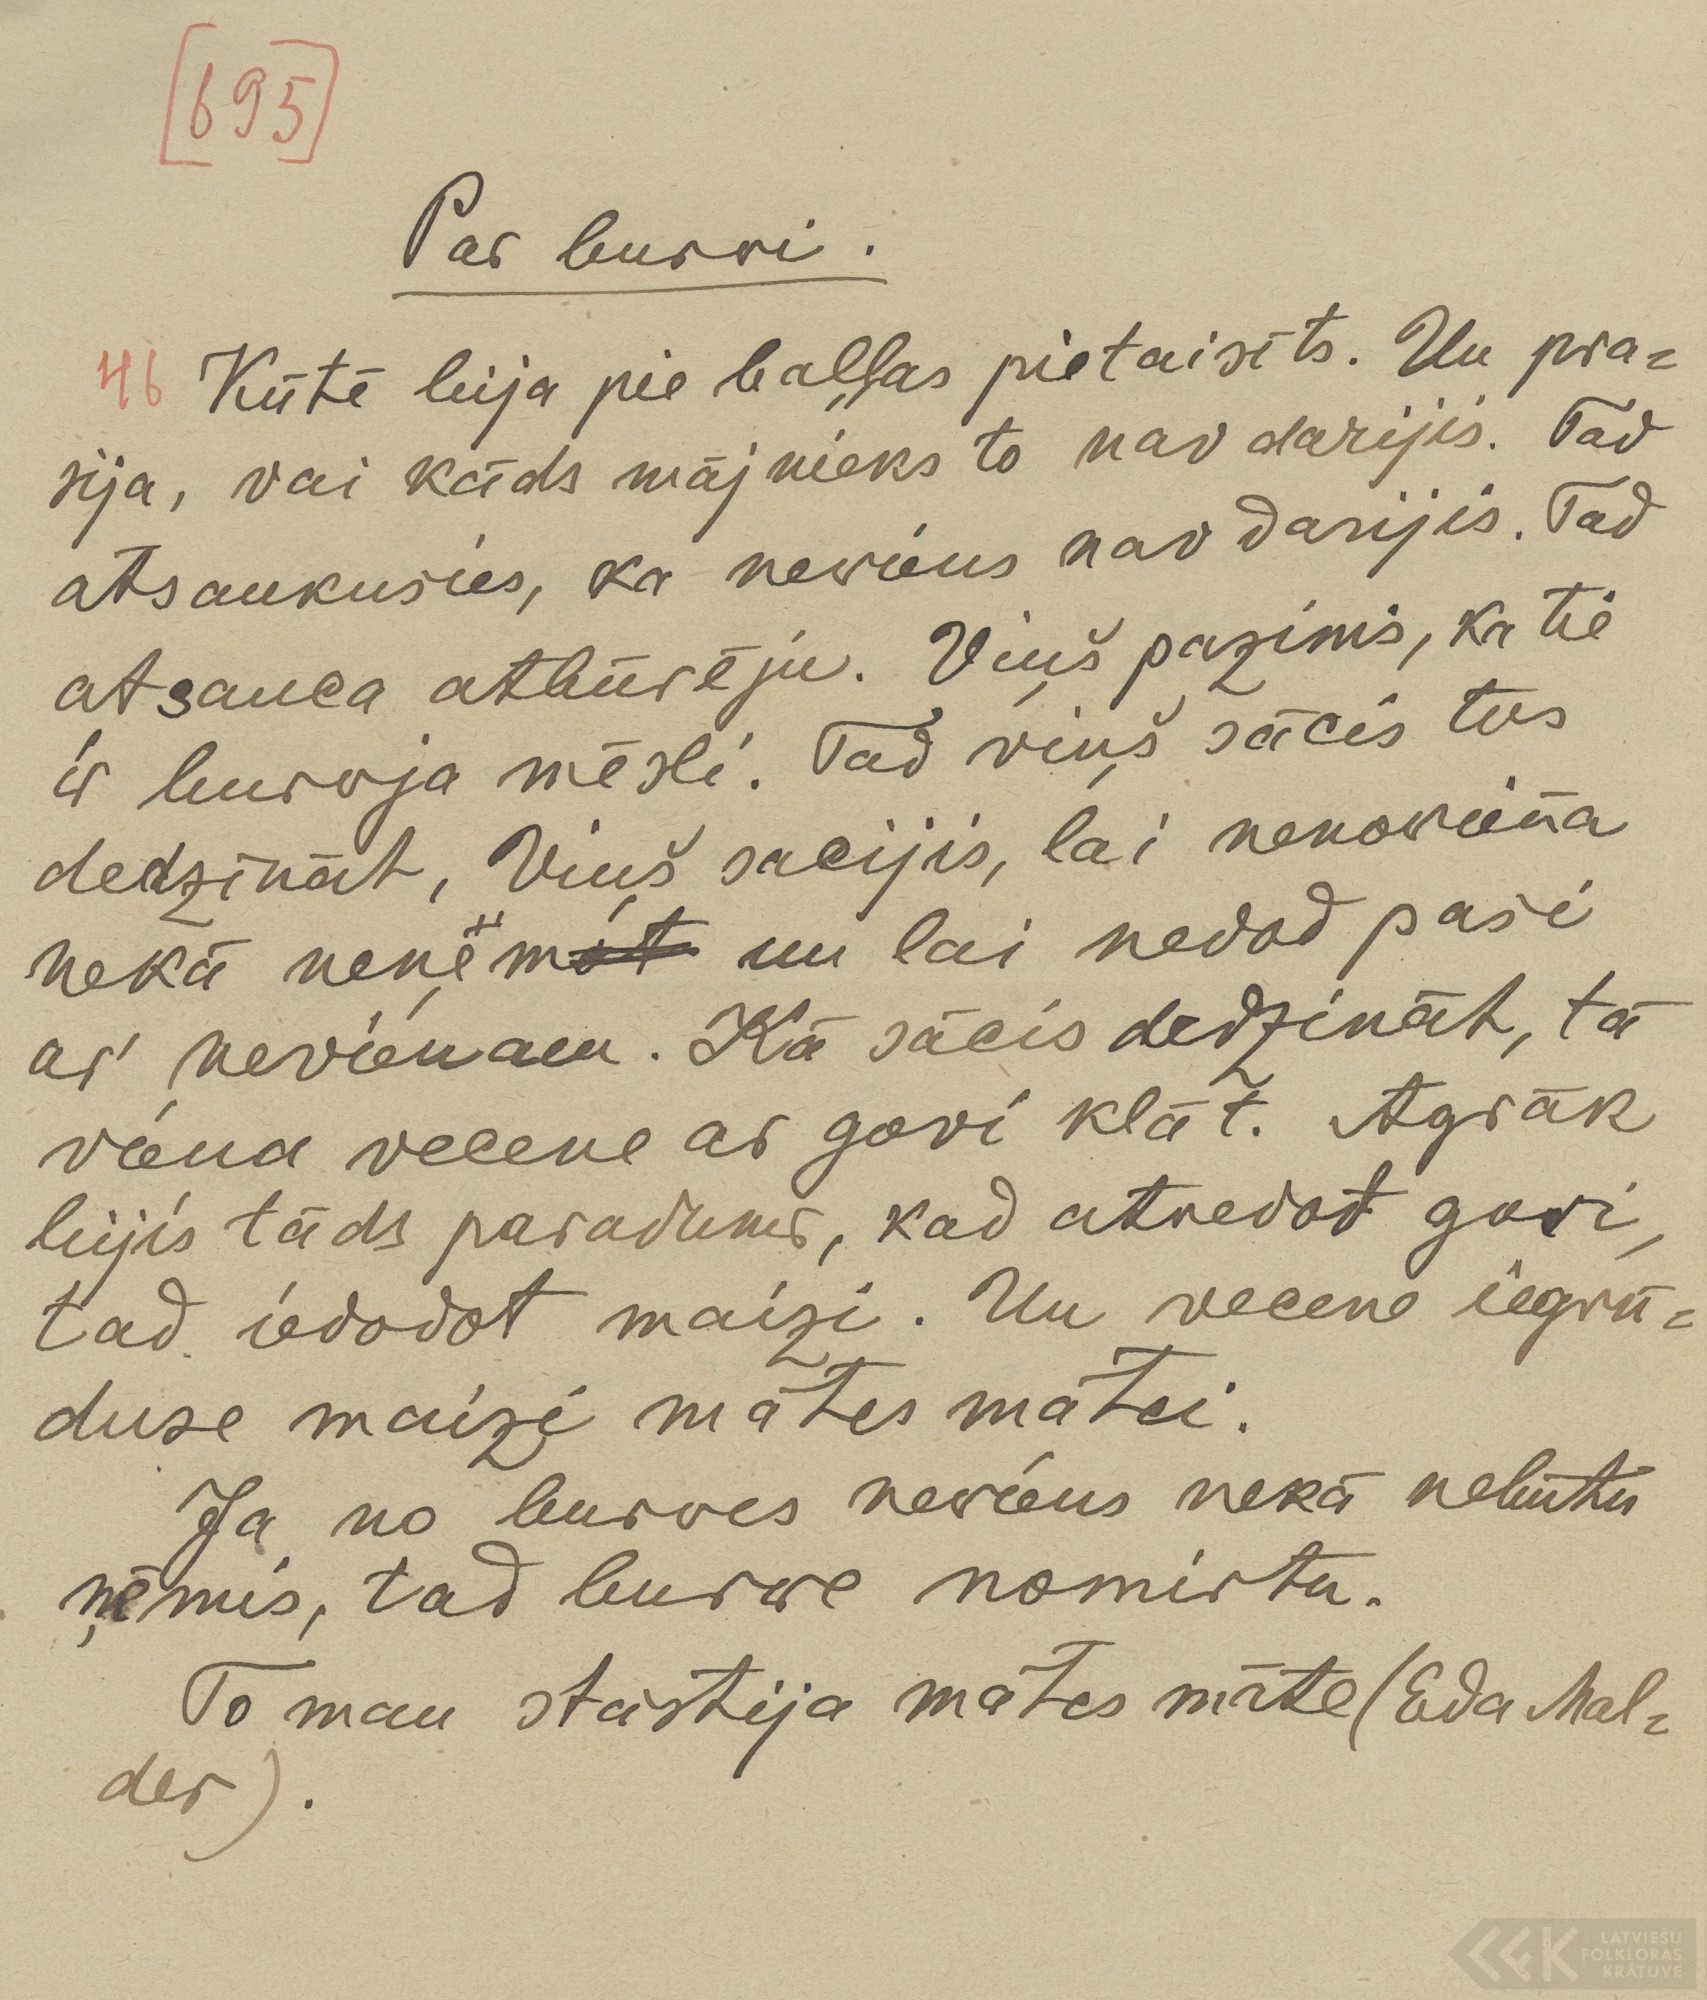 [695]
Par burvi.
46 Kūtē bija pie baļķas pietaisīts. Un pra=
sija, vai kāds mājnieks to nav darijis. Tad
atsaukusies, ka neviens nav darijis. Tad
atsauca atbūrēju. Viņš pazinis, ka tie
ir burvja mēsli. Tad viņš sācis tos
dedzināt, Viņš sacijis, lai nenoviena
nekā neņēmot un lai nedod paši
ar' nevienam. Kā sācis dedzināt, tā
viena vecene ar govi klāt. Agrāk
bijis tāds paradums, kad atvedot govi,
tad iedodot maizi. Un vecene iegrū=
duse maizi mātes mātei.
Ja no burves neviens nekā nebūtu
ņēmis, tad burve nomirtu.
To man stāstija mātes māte (Eda Mal=
der).
LATVIEŠU
FOLKLORAS
KRĀTUVE